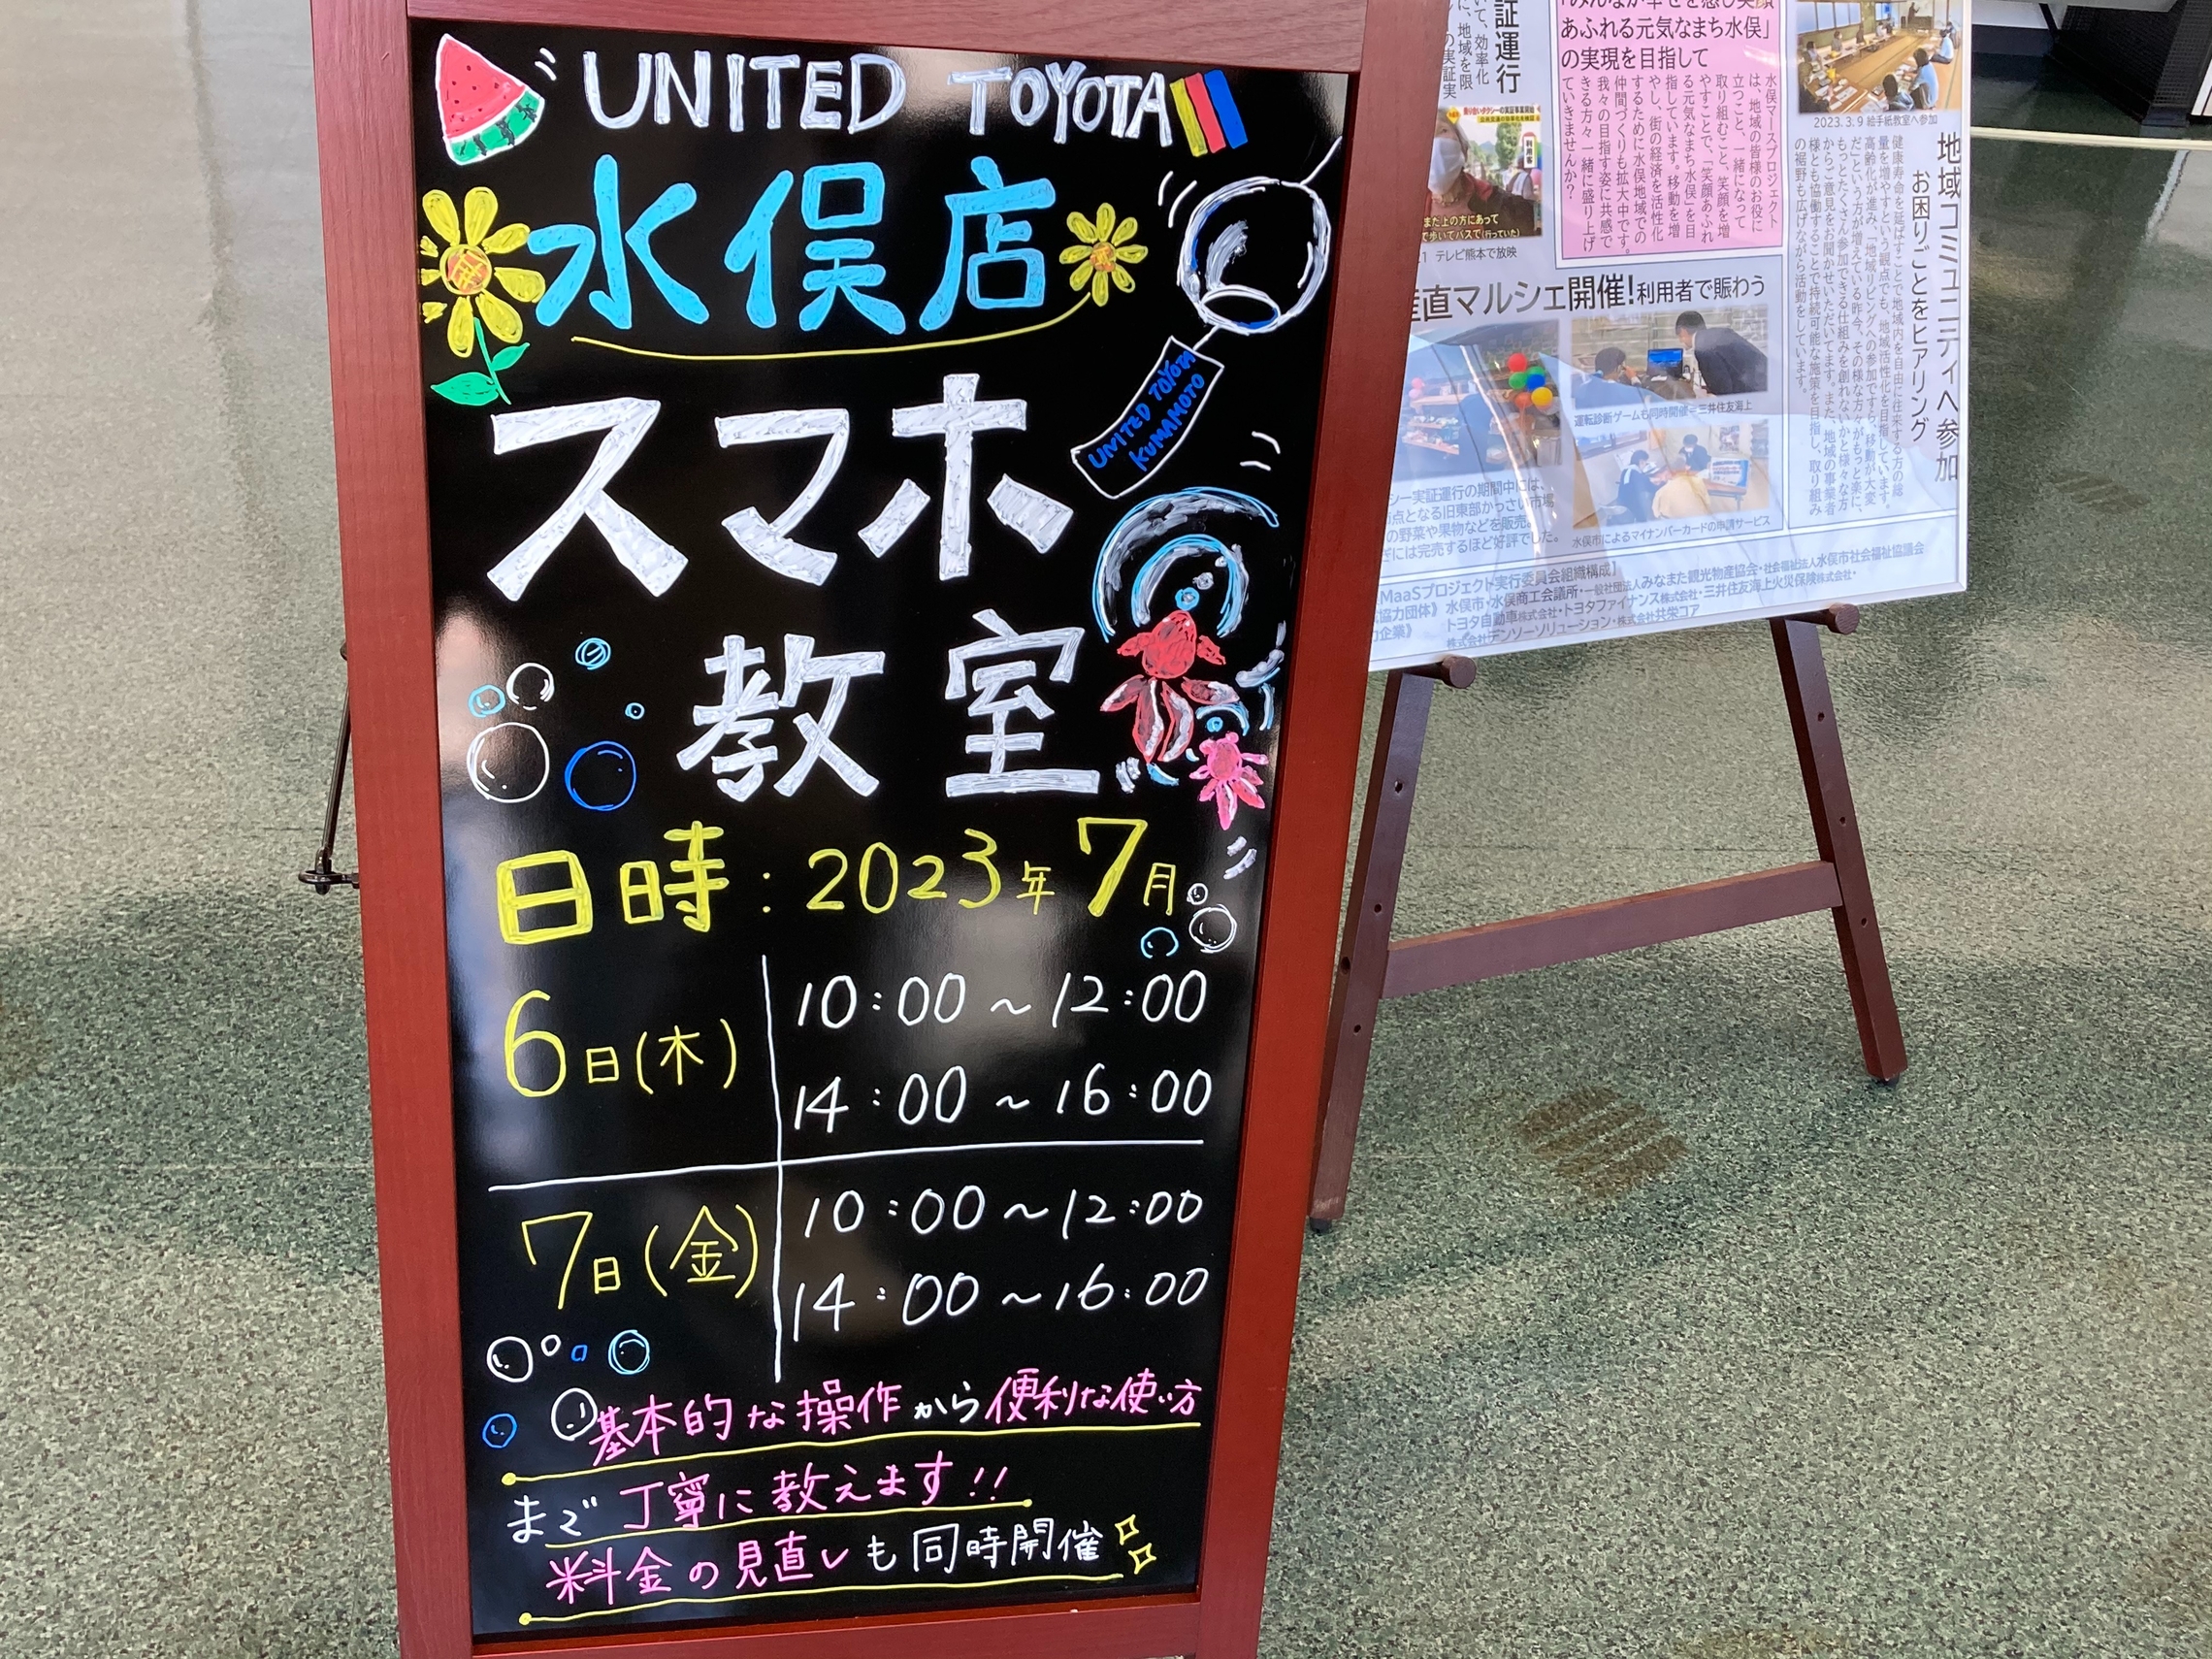 UNITED TOYOTA
水俣店
UNITED TOYOTA
KUMAMOTO
スマホ
教室
日時：2023年7月
6日(木)
10:00～12:00
14:00～16:00
7日(金)
10:00～12:00
14:00～16:00
基本的な操作から便利な使い方
まで丁寧に教えます!!
料金の見直しも同時開催
証運行
あふれる元気なまち水俣」
の実現を目指して
水俣マースプロジェクト
は、地域の皆様のお役に
立つこと、一緒になって
取り組むこと、笑顔を増
やすことで、「笑顔あふれ
る元気なまち水俣」を目
指しています。移動を増
やし、街の経済を活性化
するために水俣地域での
仲間づくりも拡大中です。
我々の目指す姿に共感で
きる方々一緒に盛り上げ
ていきませんか？
利用客
また上の方にあって
で歩いてバスで(行っていた)
テレビ熊本で放映
2023.3.9 絵手紙教室へ参加
地域コミュニティへ参加
お困りごとをヒアリング
健康寿命を延ばすことで地域内を自由に往来する方の総
量を増やすという観点でも、地域活性化を目指しています。
高齢化が進み、「地域リビングへの参加ですら、移動が大変
だ」という方が増えている昨今、その様な方々がもっと楽に、
もっとたくさん参加できる仕組みを創れないかと様々な方
からご意見をお聞かせいただいてます。また、地域の事業者
様とも協働することで持続可能な施策を目指し、取り組み
の裾野も広げながら活動をしています。
直マルシェ開催!利用者で賑わう
運転診断ゲームも同時開催＝三井住友海上
シー実証運行の期間中には、
点となる旧東部かっさい市場
の野菜や果物などを販売。
には完売するほど好評でした。
水俣市によるマイナンバーカードの申請サービス
MaaSプロジェクト実行委員会組織構成】
協力団体》 水俣市・水俣商工会議所・一般社団法人みなまた観光物産協会・社会福祉法人水俣市社会福祉協議会
企業》 トヨタ自動車株式会社・トヨタファイナンス株式会社・三井住友海上火災保険株式会社・
株式会社デンソーソリューション・株式会社共栄コア